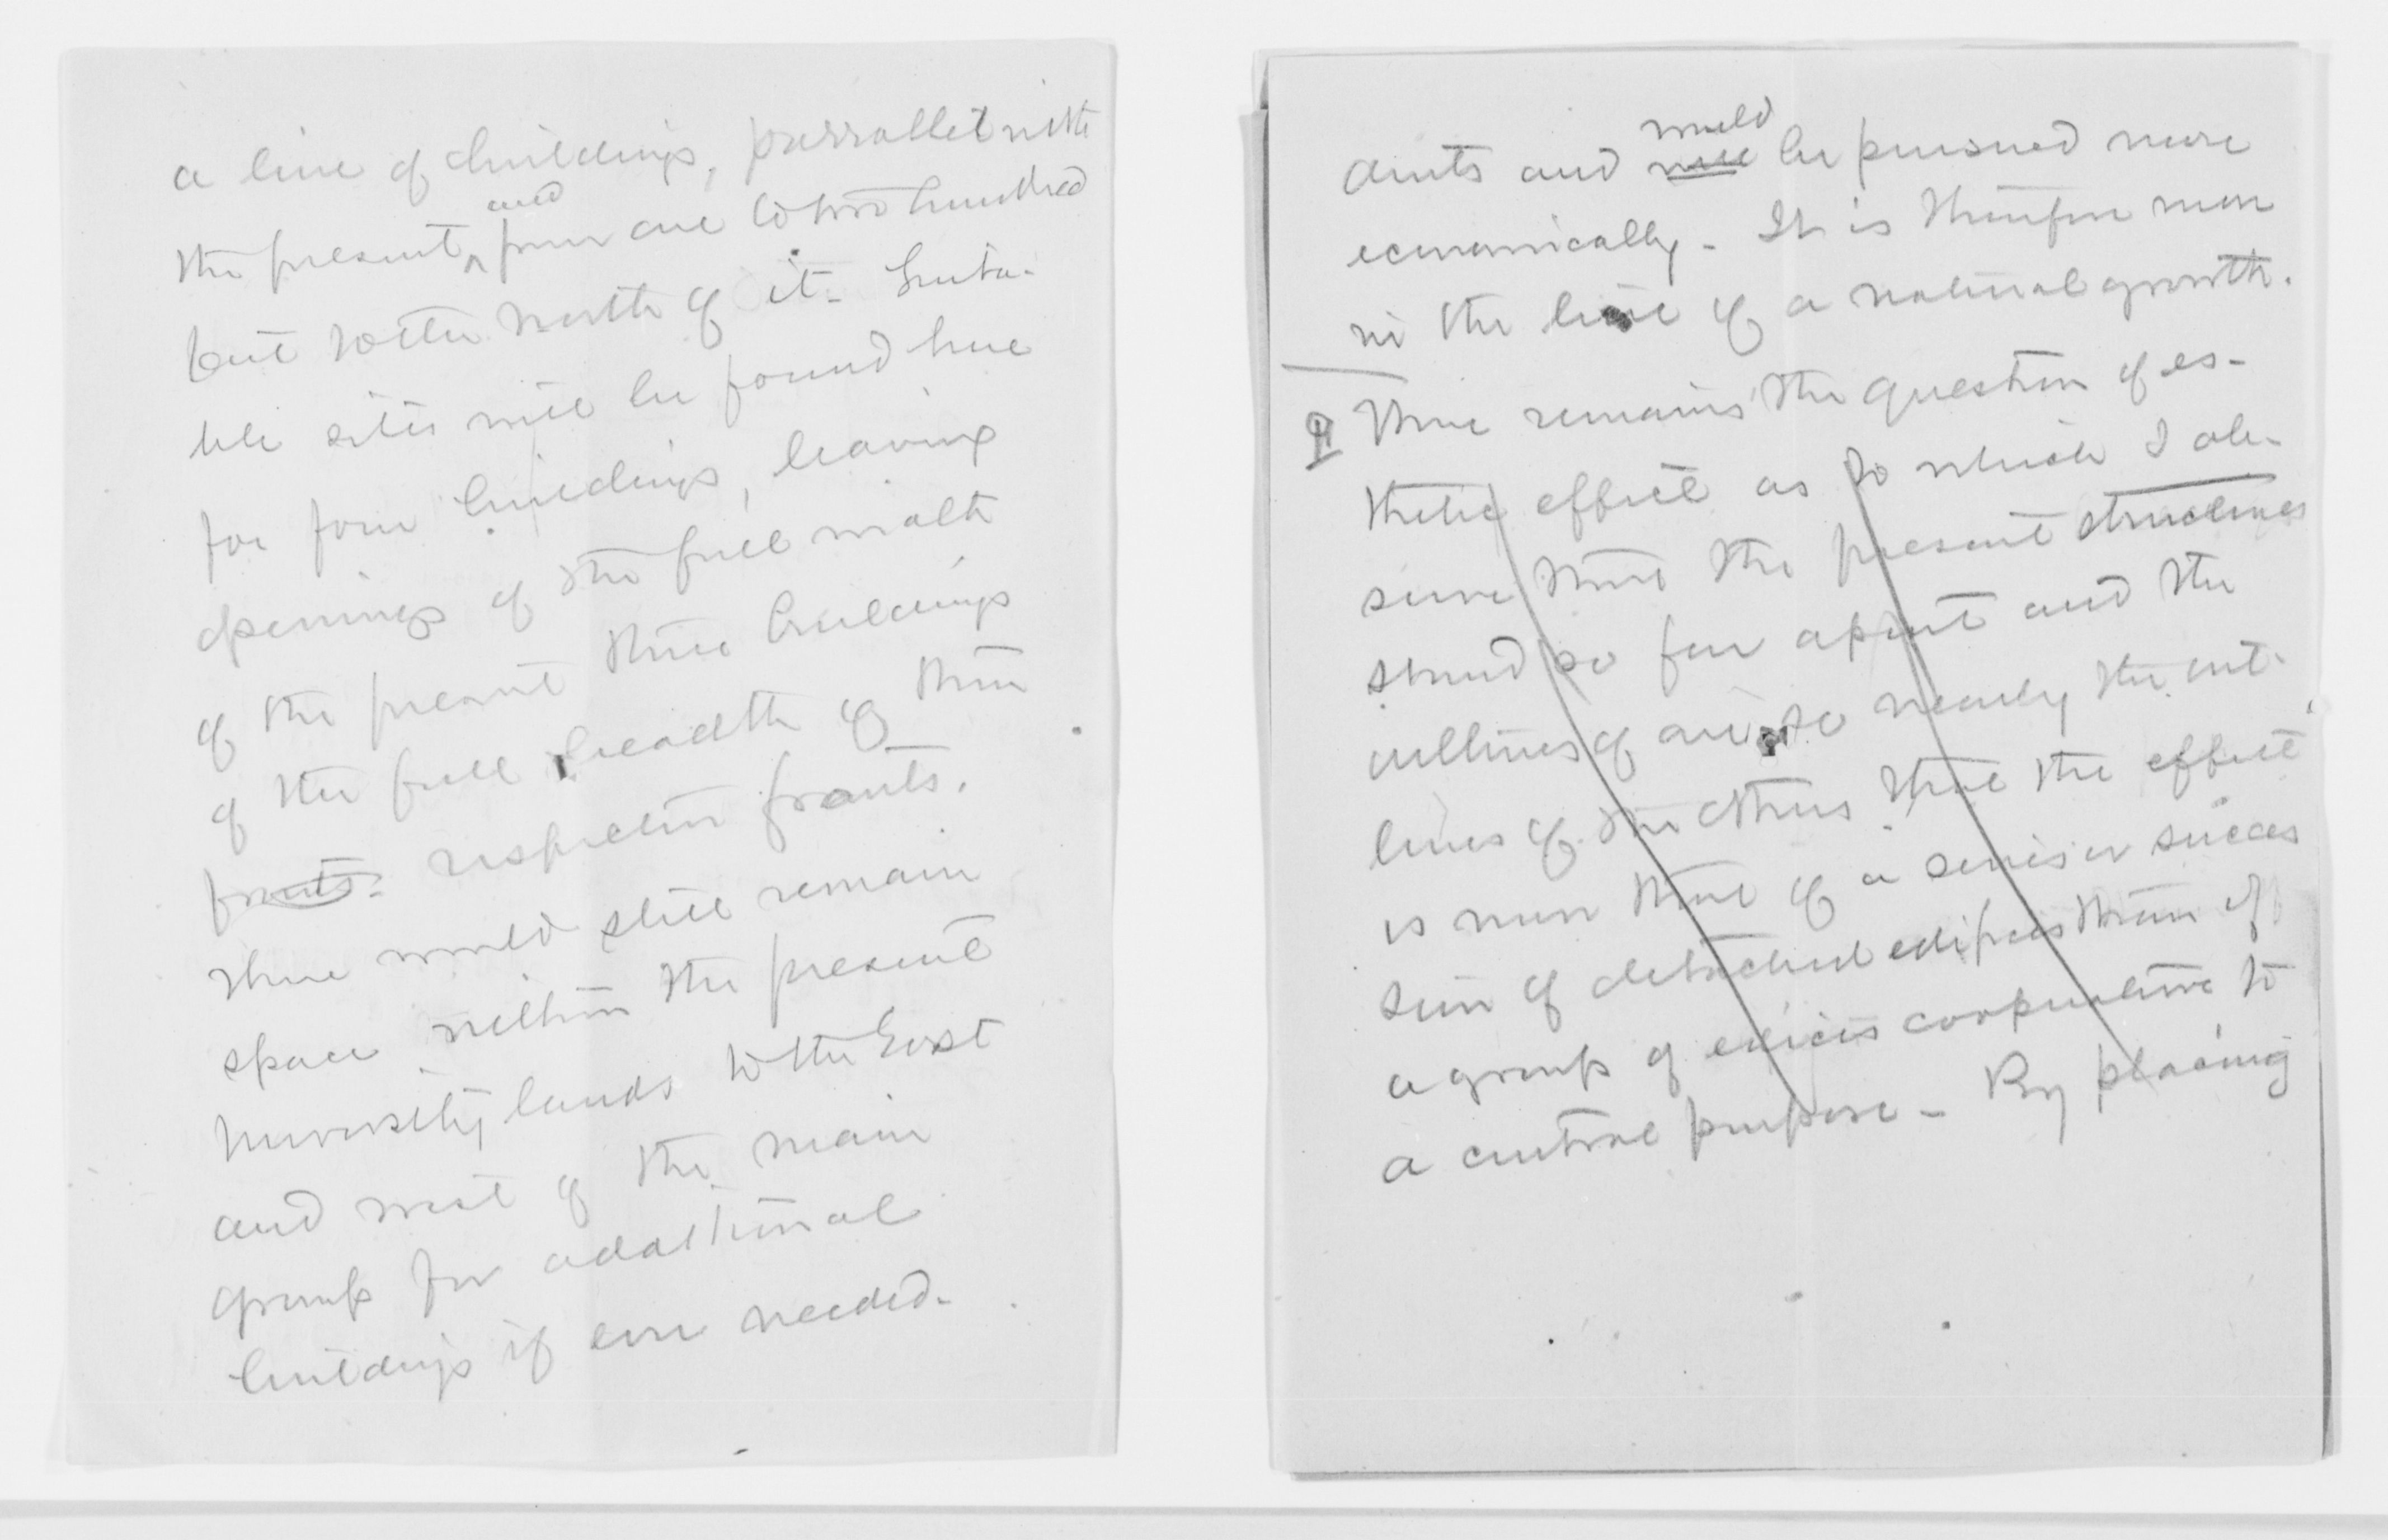 a line of buildings, parrallel with
the present, and from one to two hundred
feet to the North of it. Suita-
ble sites will be found here
for four buildings, leaving
openings of the full width
of the present three buildings
of the full breadth of their
fronts. respective fronts.
There would still remain
space within the present
University lands to the East
and west of the main
group for additional
buildings if ever needed.
dents and will would be pursued more
economically. It is therefore more
in the line of a natural growth.
¶ There remains the question of es-
thetic effect as to which I ob-
serve that the present structures
stand so far apart and the
outlines of are so nearly the out-
lines of the others that the effect
is more that of a series or succes
sion of detached edifices than of
a group of edifices cooperative to
a central purpose. By placing